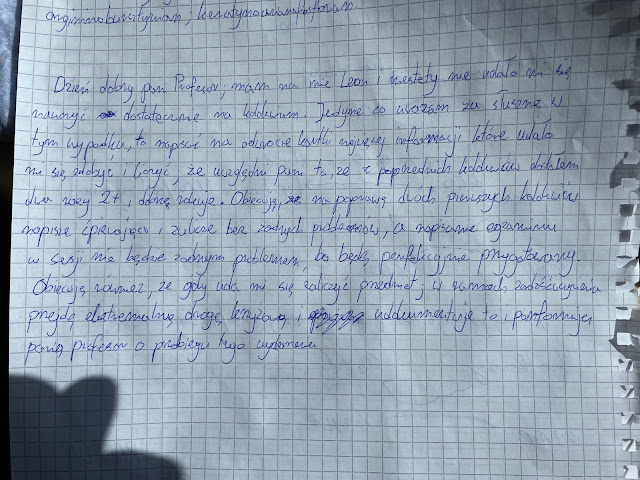 Dzień dobry pani Profesor; mam na imię Leon i niestety nie udało mi się
nauczyć dostatecznie na kolokwium. Jedyne co uważam za słuszne w
tym wypadku, to napisać na odwrocie kartki najwięcej informacji które udało
mi się zdobyć i liczyć, że uwzględni pani to, że z poprzednich kolokwiów dostałem
dwa razy 2+ i dobrą rokuję. Obiecuję, że na poprawę dwóch pierwszych kolokwiów
napiszę śpiewająco i zaliczę bez żadnych problemów, a napisanie egzaminu
w sesji nie będzie żadnym problemem, bo będę perfekcyjnie przygotowany.
Obiecuję również, że gdy uda mi się zaliczyć przedmiot, w ramach zadośćuczynienia
przejdę ekstremalną drogę krzyżową i udokumentuję to i poinformuję
panią profesor o przebiegu tego wydarzenia